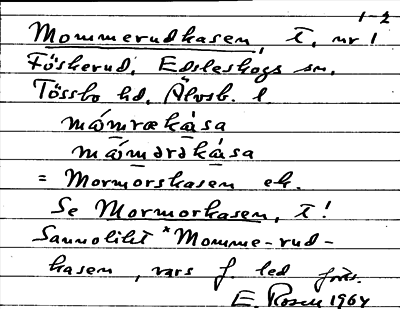 1-2
Mommerudkasen, t, nr 1
Föskerud, Edsleskogs sn,
Tössbo hd, Älvsb. l.
måm̀rækása
måm̀ərəkása
= Mormorskasen ek.
Se Mormorkasen, t!
Sannolikt *Momme-rud-
kasen, vars f. led förs.
E. Rosell 1964